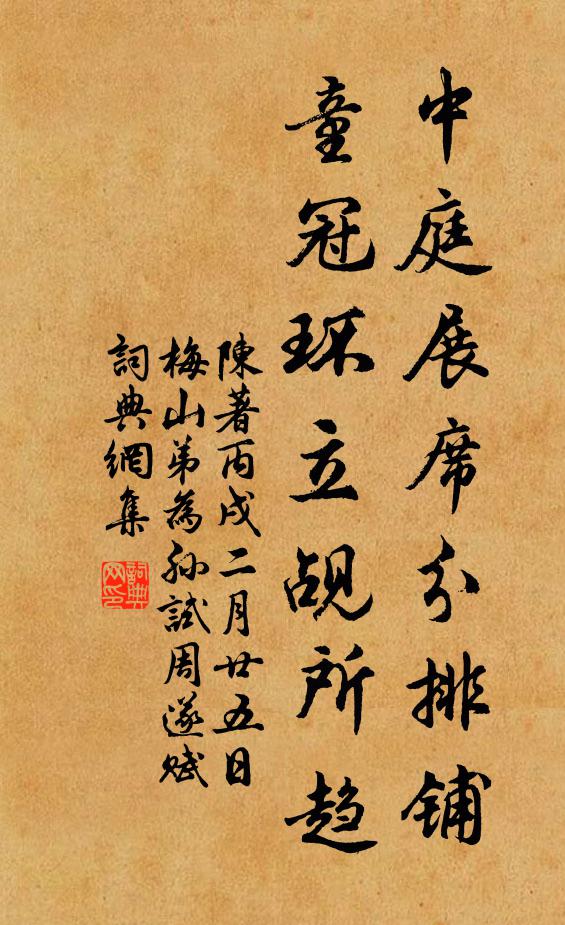 中庭展席分排鋪
童冠环立覘所趋
陳著丙戌二月廿五日
梅山弟為孫試周遂賦
詞典網集
詞典网印